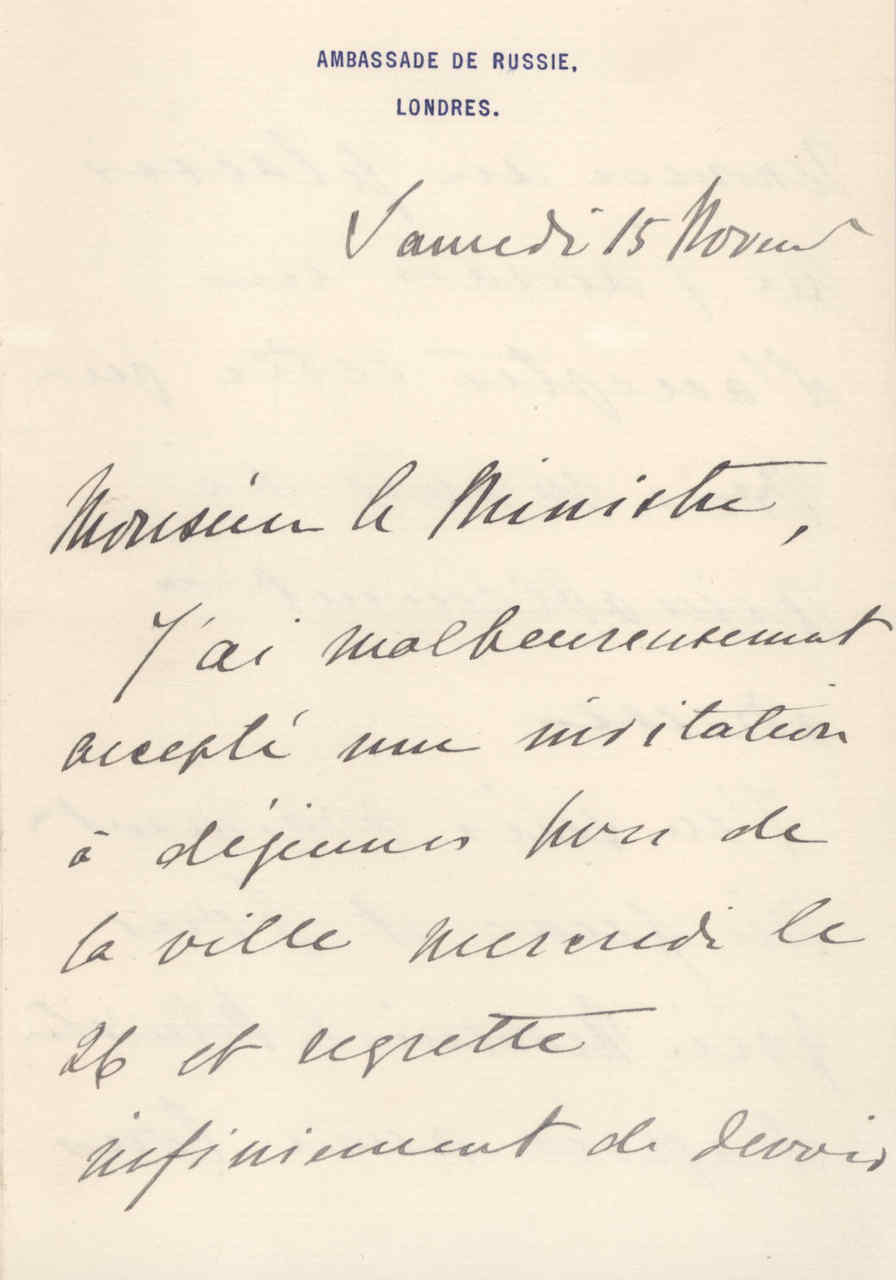 AMBASSADE DE RUSSIE,
LONDRES.
Samedi 15 Novem
Monsieur le Ministre,
J'ai malheureusement
accepté une invitation
à déjeuner hors de
la ville mercredi le
26 et regrette
infiniement de devoir